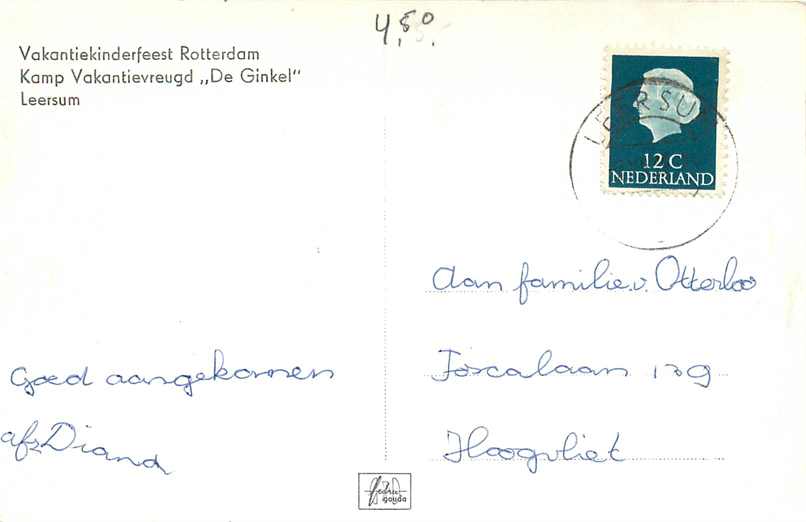 4,50.
Vakantiekinderfeest Rotterdam
Kamp Vakantievreugd „De Ginkel"
Leersum
LEERSU
12 C
NEDERLAND
Aan familie v. Otterloo
Toscalaan 139
Hoogvliet
Goed aangekomen
afz Diana
gouda